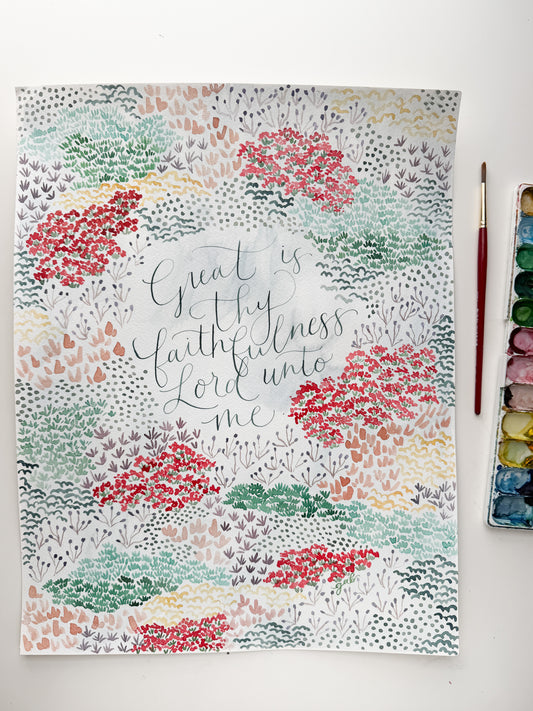 Great is
thy
faithfulness
Lord unto
me